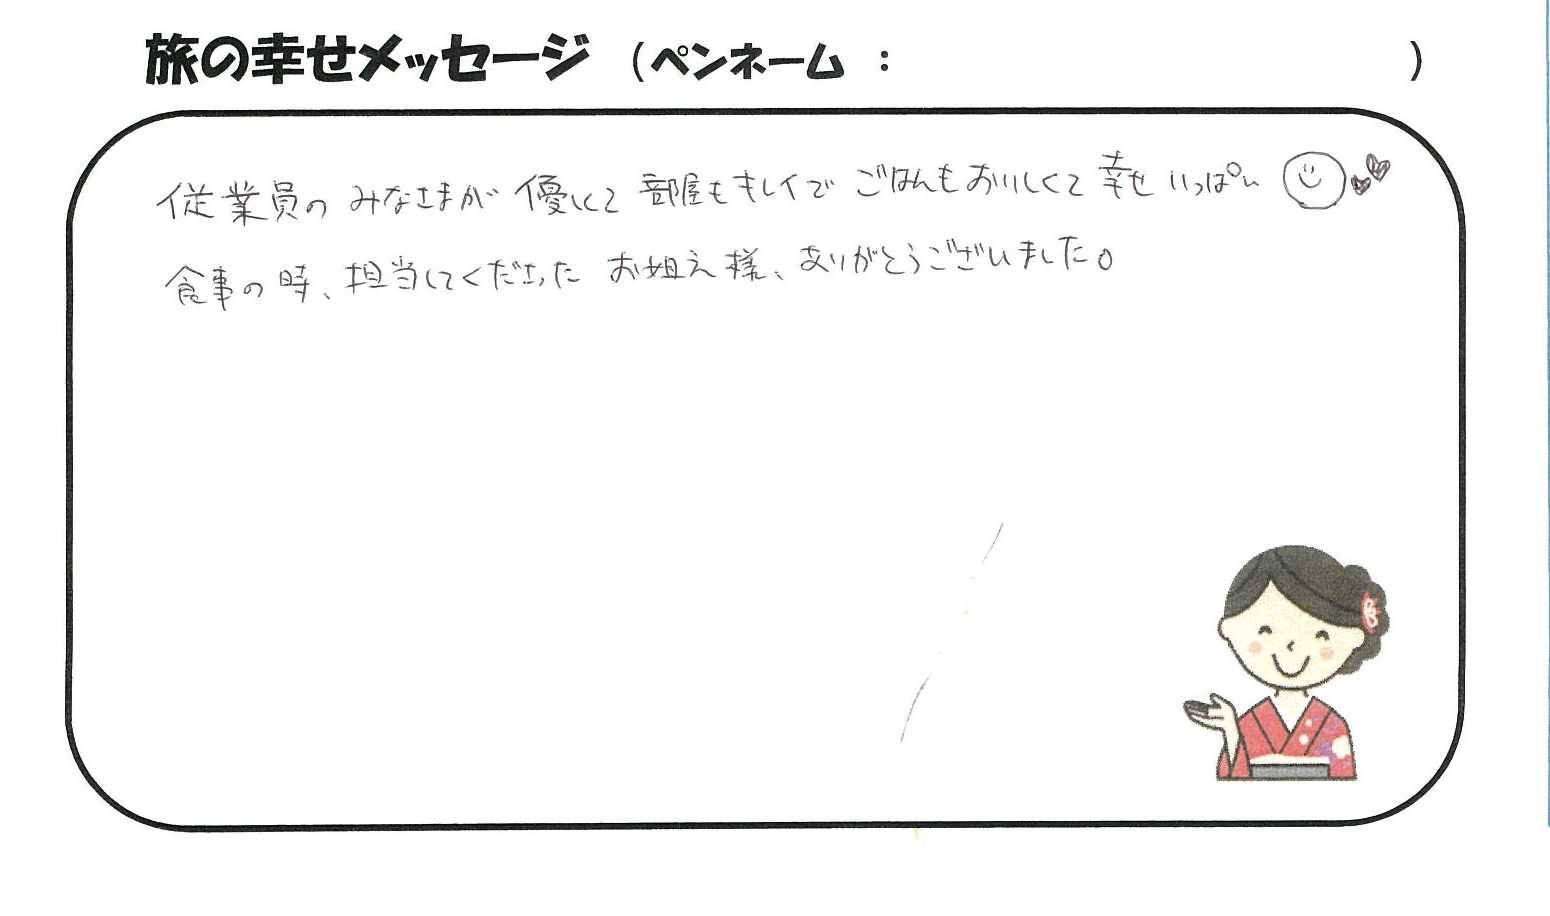 旅の幸せメッセージ （ペンネーム ： ）
従業員の みなさまが 優しくて 部屋もキレイで ごはんもおいしくて 幸せ いっぱい
食事の時、担当してくださった お姐え様、ありがとうございました。